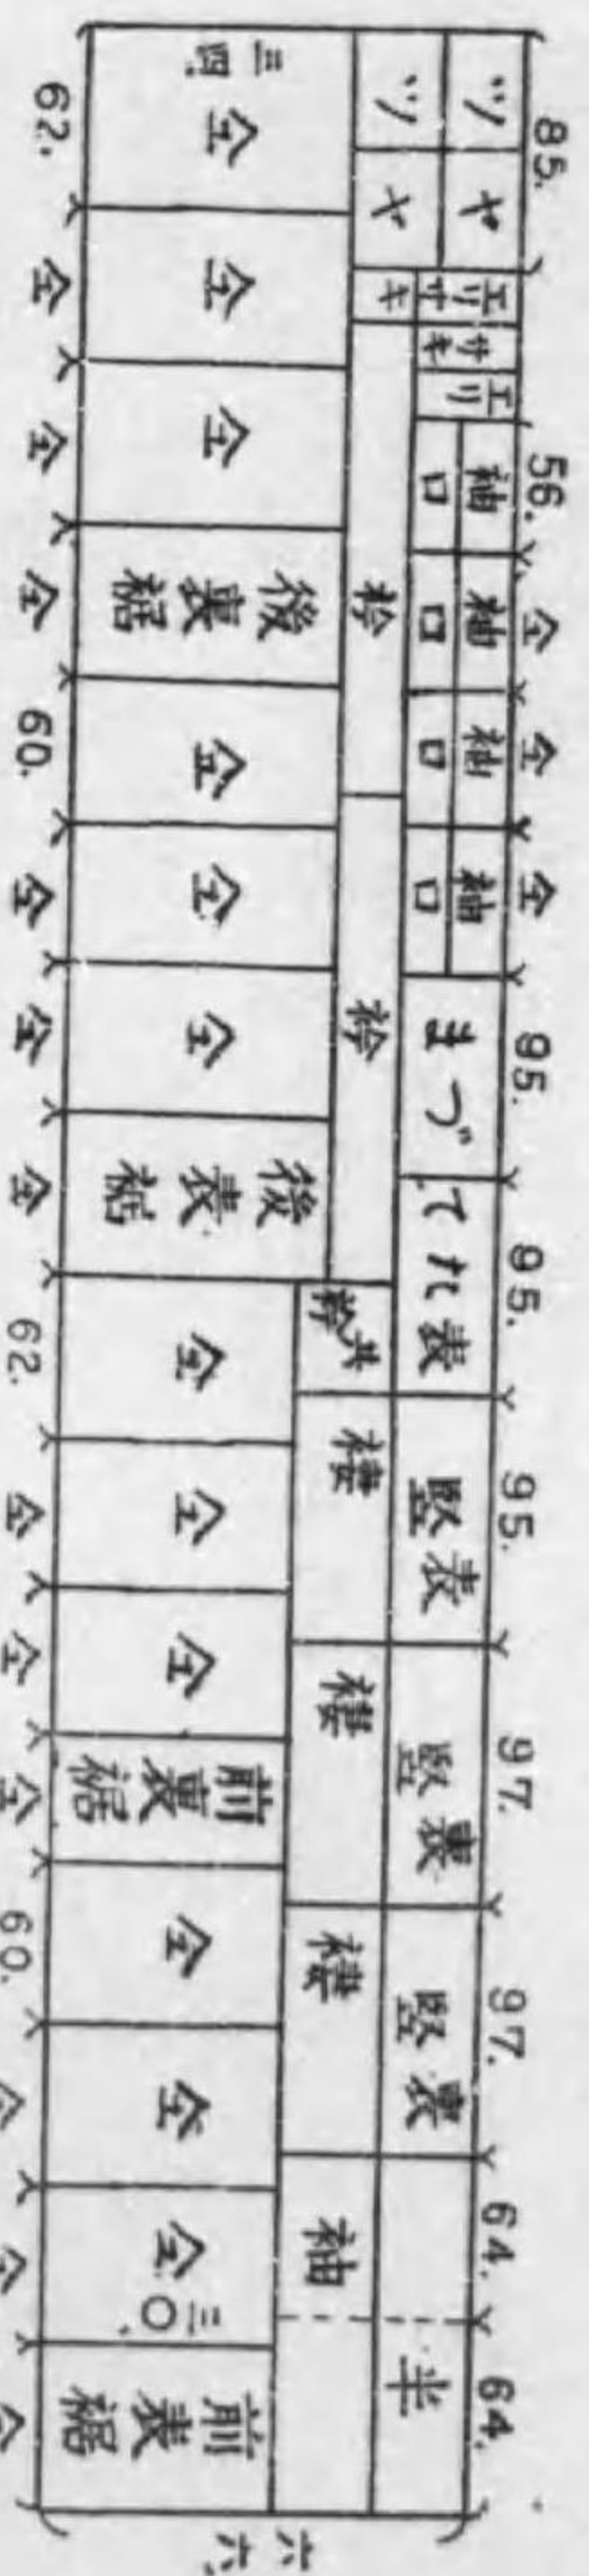 85. 56. 仝 仝 仝 95. 95. 95. 97. 97. 64. 64.
ツヤ
ツヤ
エリサキ
エリサキ
袖口
袖口
袖口
袖口
まづ
てれ表
竪表
竪裏
竪裏
半
衿
衿
共衿
褄
褄
褄
袖
三四.
仝
仝
仝
後裏裾
仝
仝
仝
後表裾
仝
仝
仝
前裏裾
仝
仝
仝
三〇.
前表裾
62. 仝 仝 仝 60. 仝 仝 仝 62. 仝 仝 仝 60. 仝 仝 仝
六六.